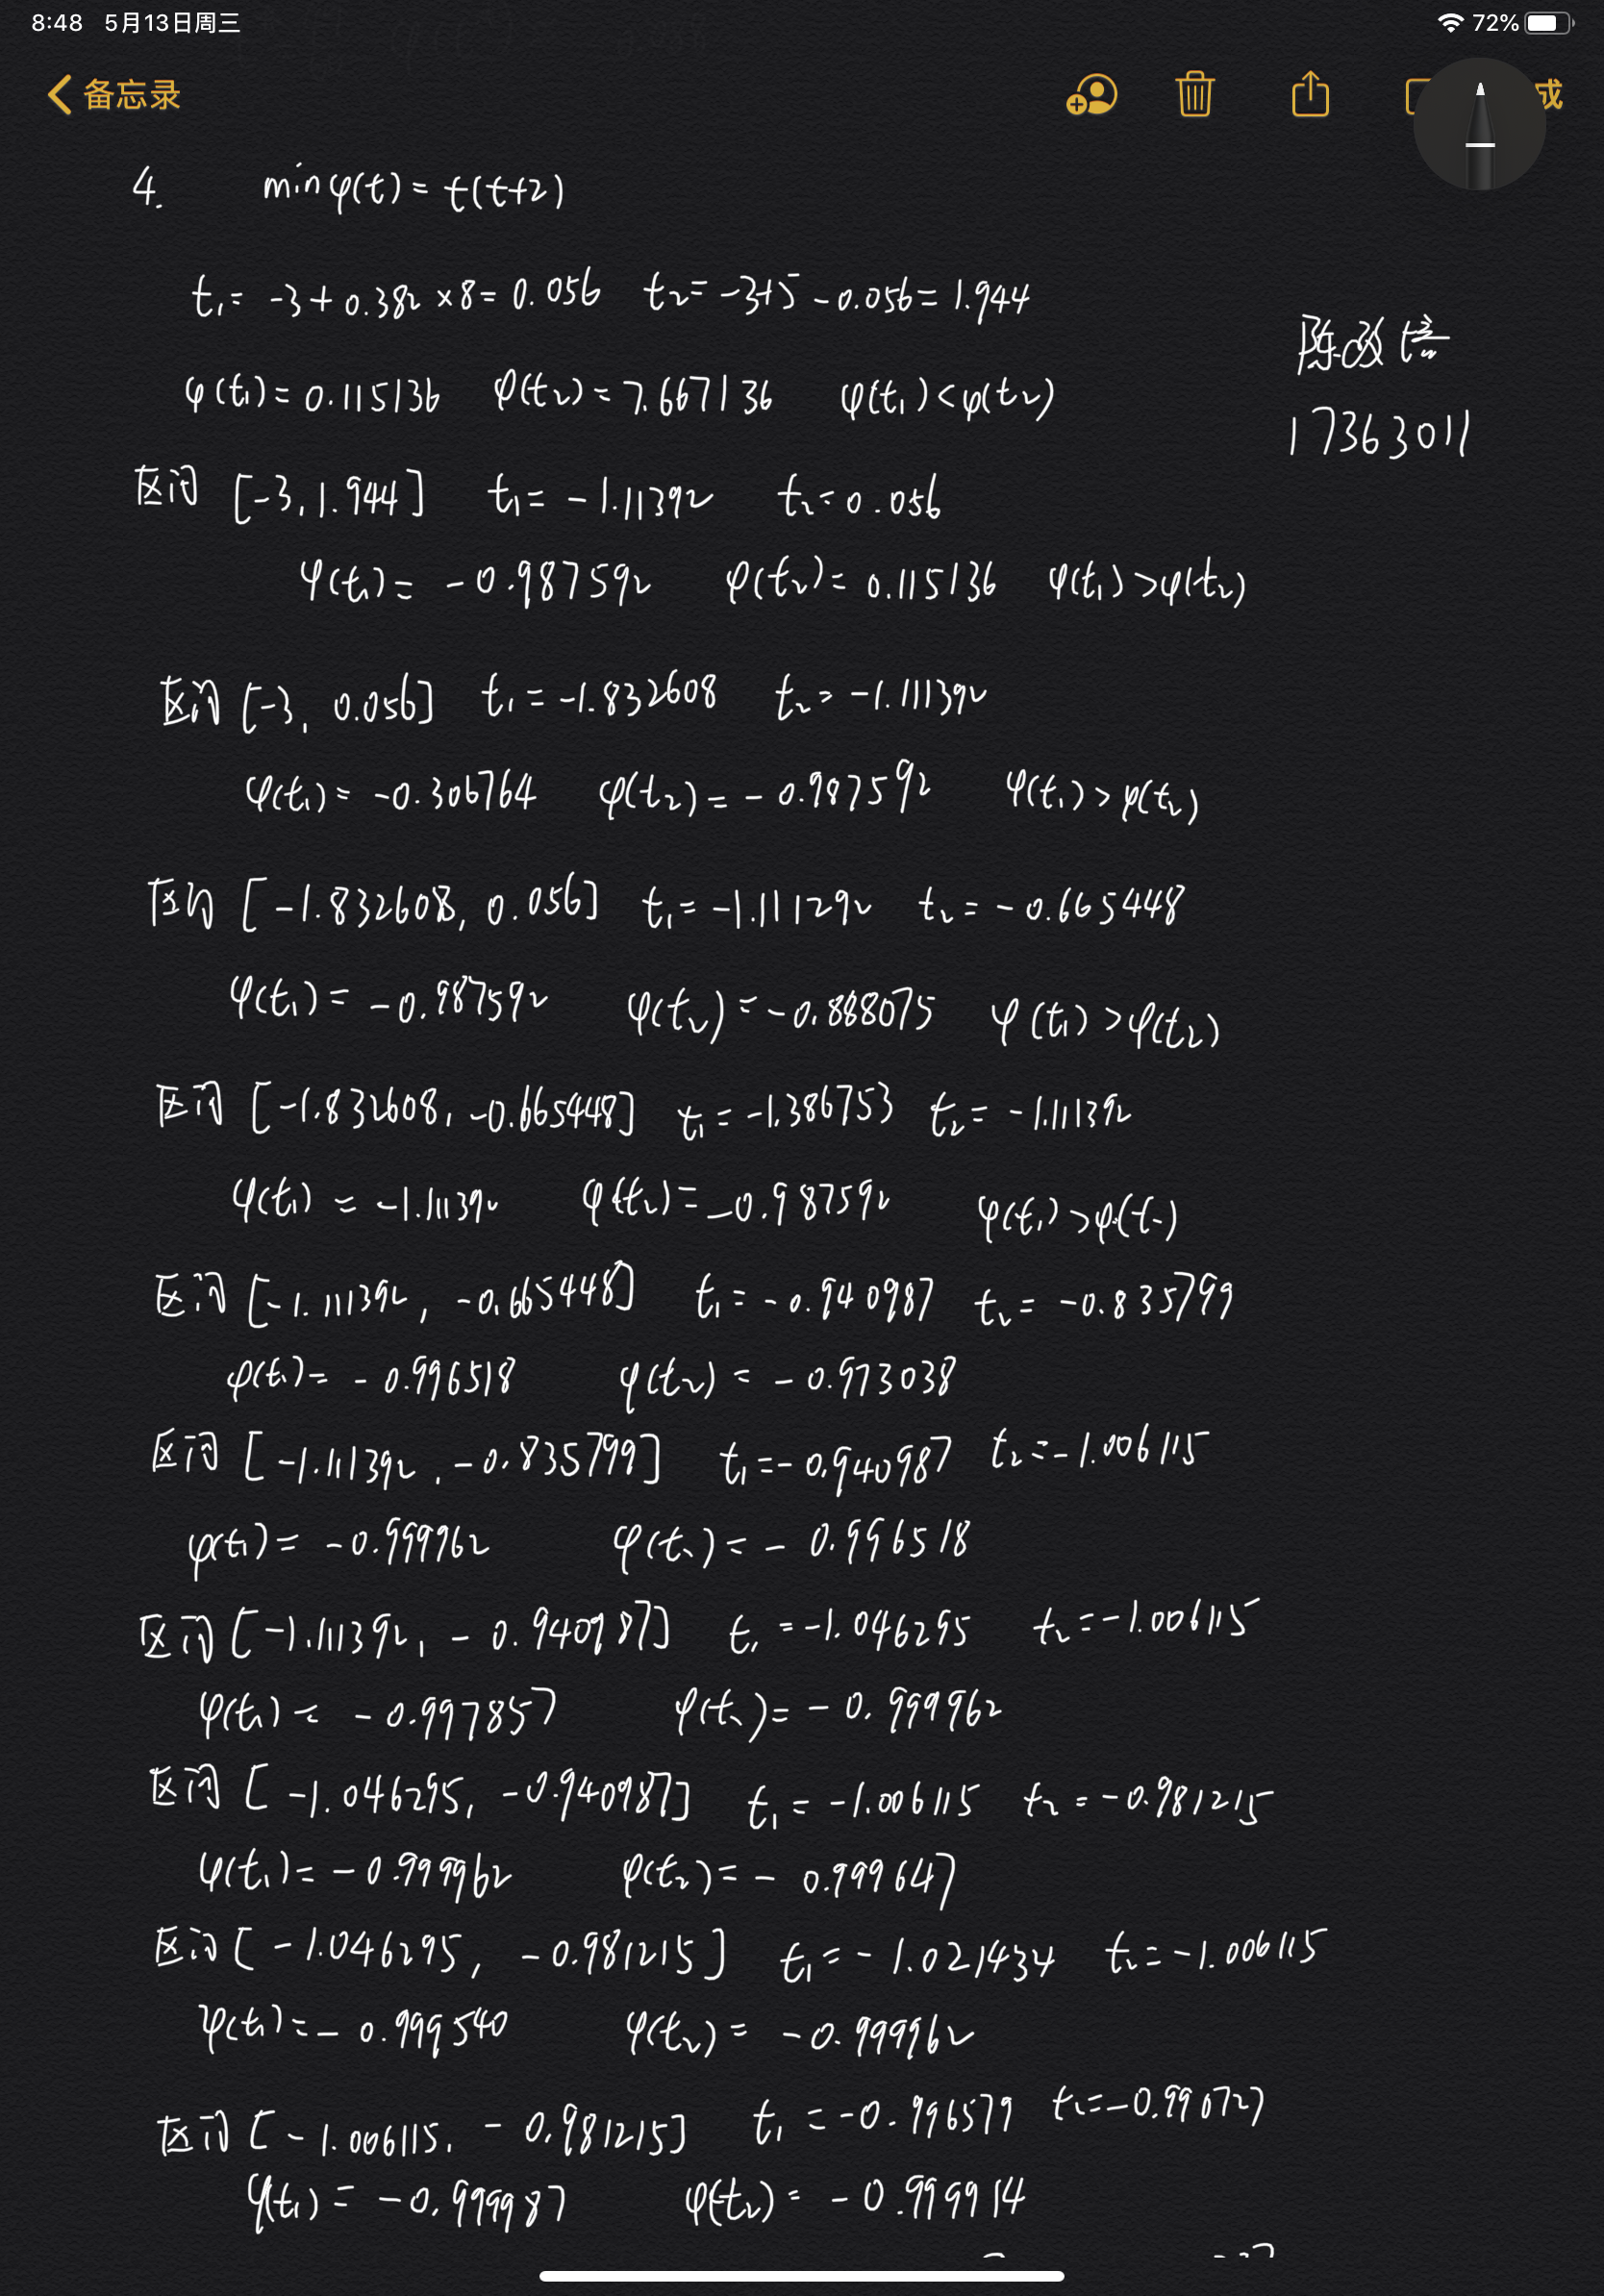 8:48 5月13日周三 72%
备忘录 成
4. min φ(t) = t(t+2)
t₁= -3+0.382×8=0.056 t₂=-3+5-0.056=1.944
陈
φ(t₁)=0.115136 φ(t₂)=7.667136 φ(t₁)<φ(t₂)
17363011
区间 [-3,1.944] t₁=-1.11392 t₂=0.056
φ(t₁)=-0.987592 φ(t₂)=0.115136 φ(t₁)>φ(t₂)
区间 [-3, 0.056] t₁=-1.832608 t₂=-1.111392
φ(t₁)=-0.306764 φ(t₂)=-0.987592 φ(t₁)>φ(t₂)
区间 [-1.832608, 0.056] t₁=-1.111292 t₂=-0.665448
φ(t₁)=-0.987592 φ(t₂)=-0.888075 φ(t₁)>φ(t₂)
区间 [-1.832608, -0.665448] t₁=-1.386753 t₂=-1.111392
φ(t₁)=-1.111392 φ(t₂)=-0.987592 φ(t₁)>φ(t₂)
区间 [-1.111392, -0.665448] t₁=-0.940987 t₂=-0.835799
φ(t₁)=-0.996518 φ(t₂)=-0.973038
区间 [-1.111392, -0.835799] t₁=-0.940987 t₂=-1.006115
φ(t₁)=-0.999962 φ(t₂)=-0.996518
区间 [-1.111392, -0.940987] t₁=-1.046295 t₂=-1.006115
φ(t₁)=-0.997857 φ(t₂)=-0.999962
区间 [-1.046295, -0.940987] t₁=-1.006115 t₂=-0.981215
φ(t₁)=-0.999962 φ(t₂)=-0.999647
区间 [-1.046295, -0.981215] t₁=-1.021434 t₂=-1.006115
φ(t₁)=-0.999540 φ(t₂)=-0.999962
区间 [-1.006115, -0.981215] t₁=-0.996579 t₂=-0.990727
φ(t₁)=-0.999987 φ(t₂)=-0.999914